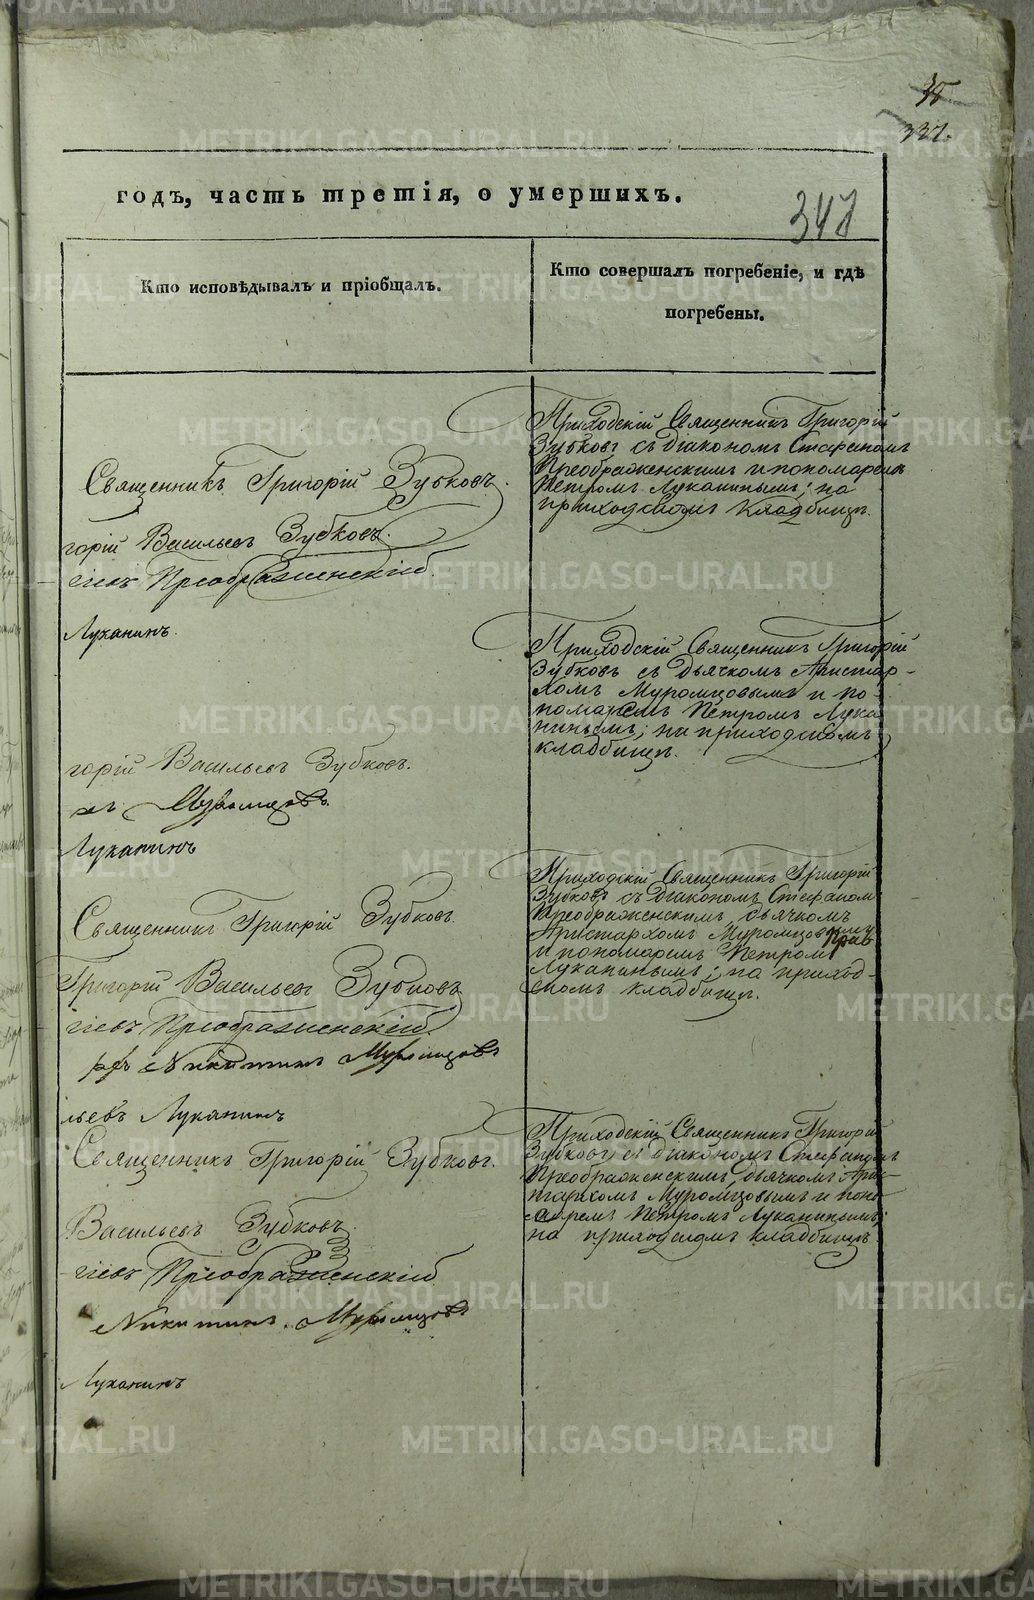 337.
347
годъ, часть третія, о умершихъ.
Кто исповѣдывалъ и пріобщалъ.
Кто совершалъ погребеніе, и гдѣ
погребены.
Священникъ Григорій Зубковъ.
горій Васильевъ Зубковъ.
гіевъ Преображенскій.
Луканинъ.
Приходскій Священникъ Григорій
Зубковъ съ діакономъ Стефаномъ
Преображенскимъ и пономаремъ
Петромъ Луканинымъ; на
приходскомъ кладбищѣ.
горій Васильевъ Зубковъ.
хъ Муромцовъ.
Луканинъ
Приходскій Священникъ Григорій
Зубковъ съ дьячкомъ Аристар-
хомъ Муромцовымъ и по-
номаремъ Петромъ Лука
нинымъ; на приходскомъ
кладбищѣ.
Священникъ Григорій Зубковъ
Григорій Васильевъ Зубковъ
гіевъ Преображенскій.
рхъ Никитинъ Муромцовъ
льевъ Луканинъ
Приходскій Священникъ Григорій
Зубковъ съ діакономъ Стефаномъ
Преображенскимъ, дьячкомъ
Аристархомъ Муромцовымъ
и пономаремъ Петромъ
Луканинымъ; на приход-
скомъ кладбищѣ.
Священникъ Григорій Зубковъ.
Васильевъ Зубковъ.
гіевъ Преображенскій
Никитинъ Муромцовъ
Луканинъ
Приходскій Священникъ Григорій
Зубковъ съ діакономъ Стефаномъ
Преображенскимъ, дьячкомъ Арис-
тархомъ Муромцовымъ и поно-
маремъ Петромъ Луканинымъ;
на приходскомъ кладбищѣ
METRIKI.GASO-URAL.RU